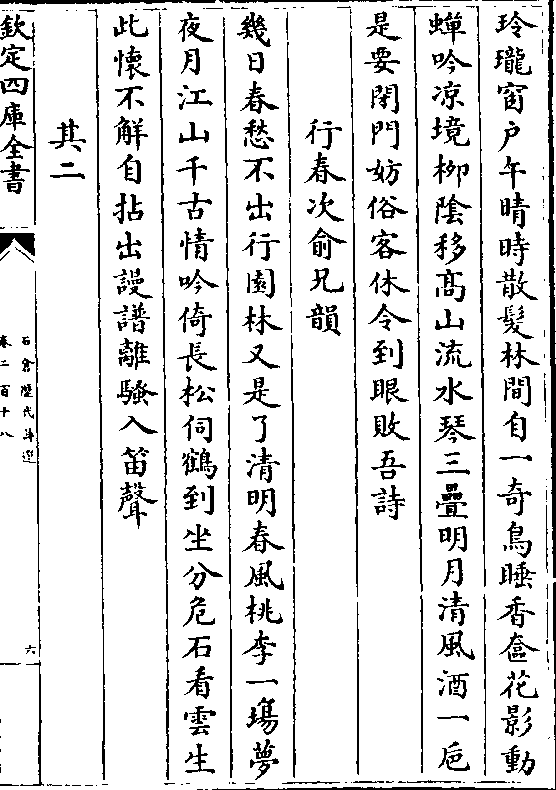 玲瓏窗户午晴時散髮林間自一奇鳥睡香奩花影動
蟬吟凉境柳陰移髙山流水琴三疊明月清風酒一巵
是要閉門妨俗客休令到眼敗吾詩
行春次俞兄韻
幾日春愁不出行園林又是了清明春風桃李一塲夢
夜月江山千古情吟倚長松伺鶴到坐分危石看雲生
此懷不解自拈出謾譜離騷入笛聲
其二
欽定四庫全書
石倉歷代詩選
卷二百十八
六